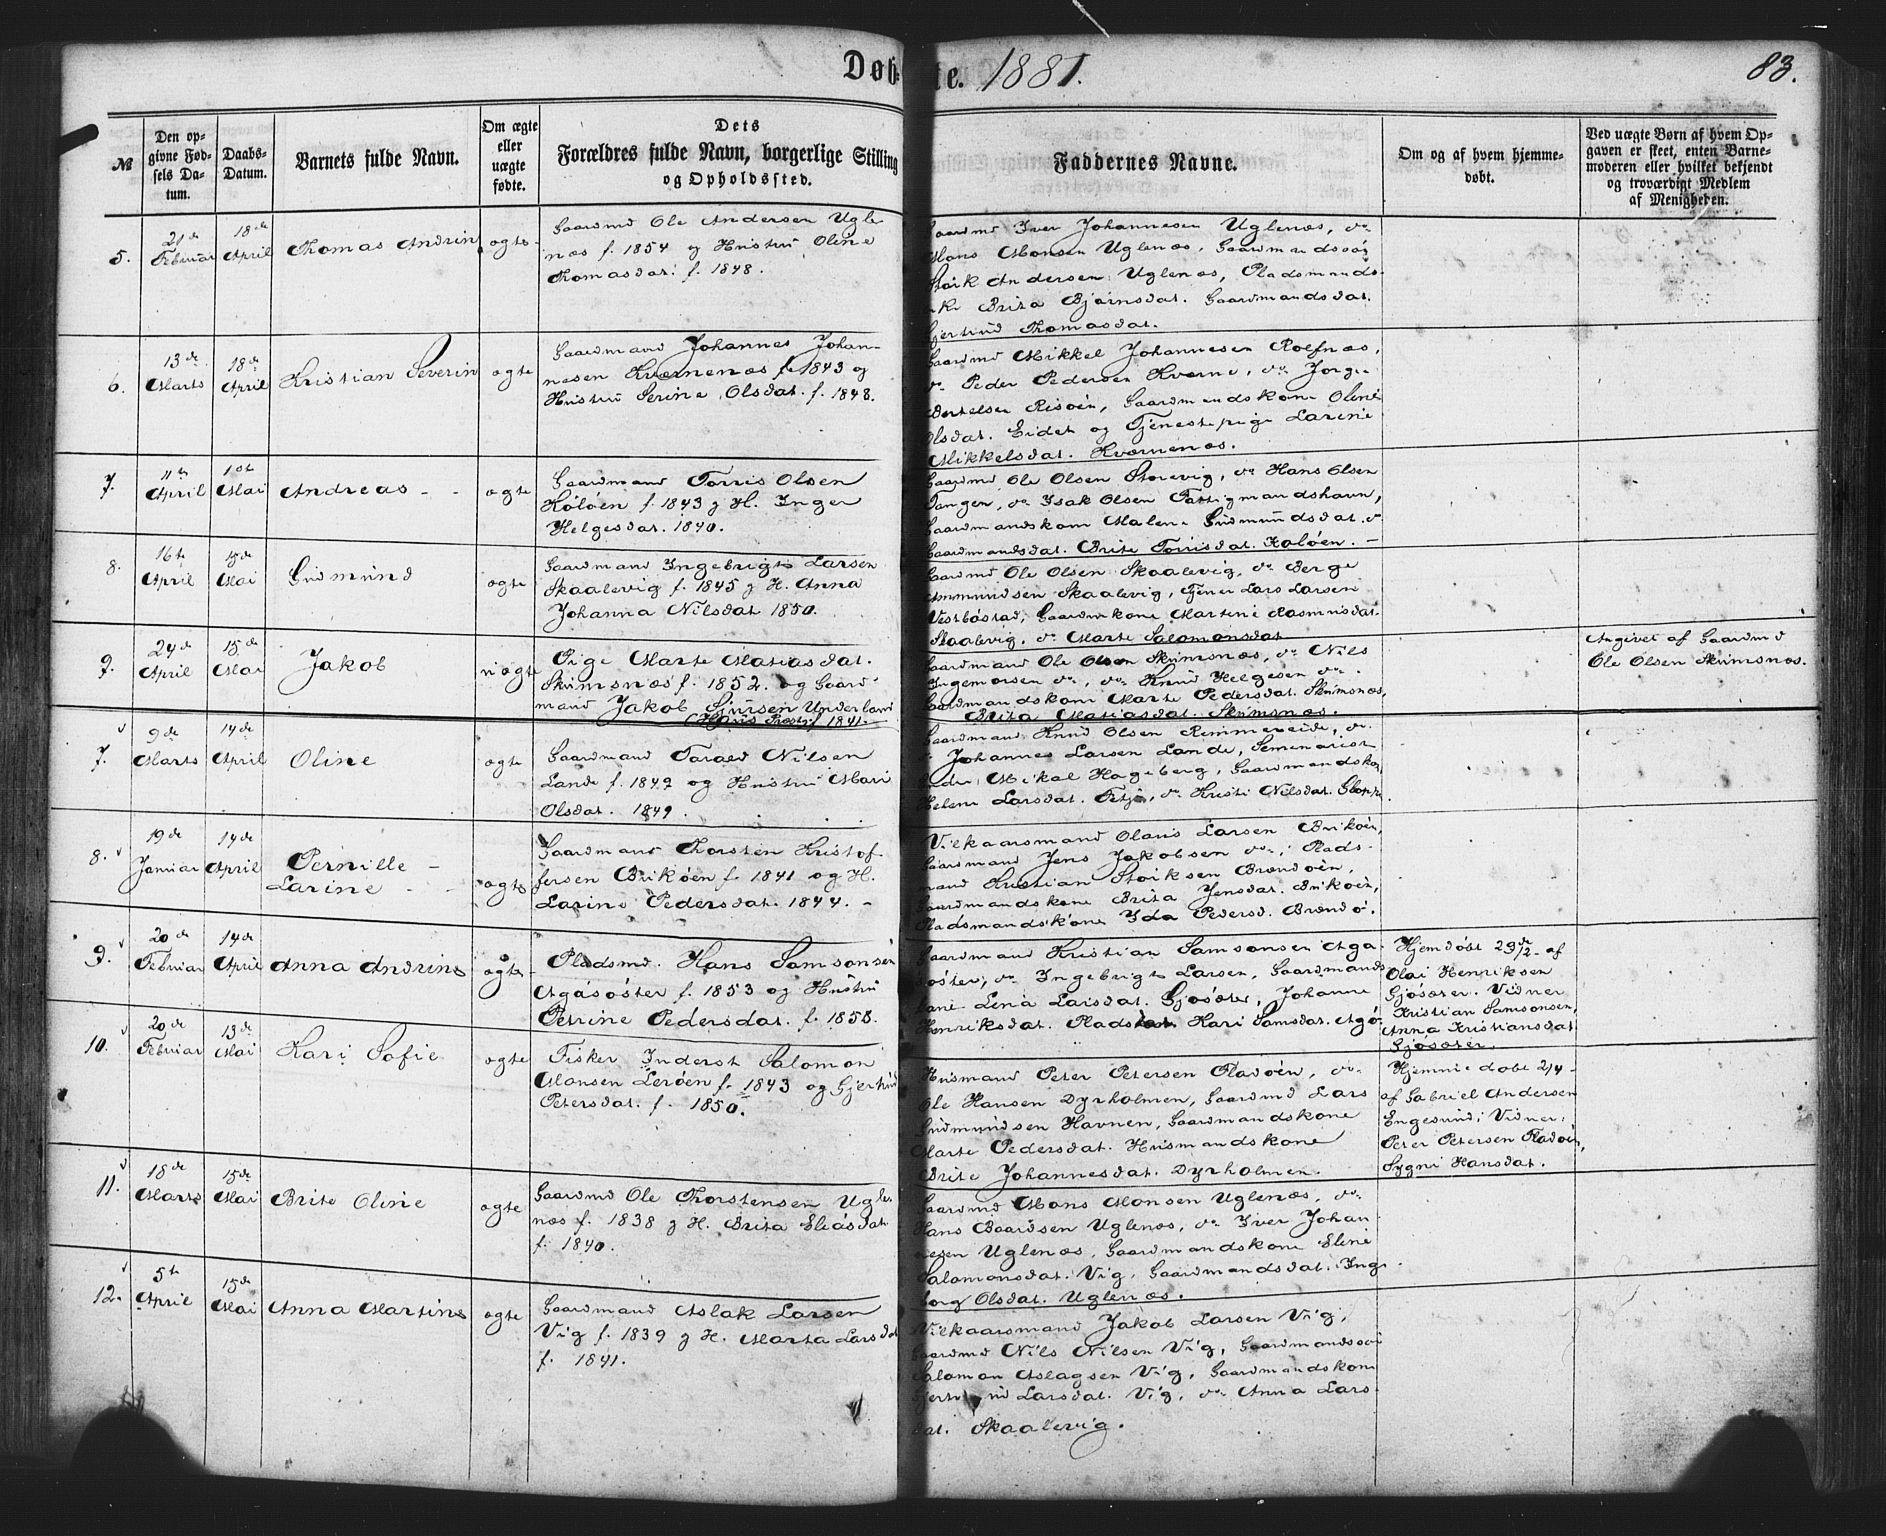 Døb- te. 1881. 83.
№
Den op-
givne Fød-
sels Da-
tum.
Daabs-
Datum.
Barnets fulde Navn.
Om ægte
eller
uægte
fødte.
Dets
Forældres fulde Navn, borgerlige Stilling
og Opholdssted.
Faddernes Navne.
Om og af hvem hjemme-
døbt.
Ved uægte Børn af hvem Op-
gaven er skeet, enten Barne-
moderen eller hvilket bekjendt
og troværdigt Medlem
af Menigheden.
5.
21de
Februar
18de
April
Thomas Andrin
ægte
Gaardmd Ole Andersen Ugle-
næs f. 1854 og Hustru Oline
Thomasdat. f. 1848.
Gaardmd Iver Johannesen Uglenæs, do
Mons Monsen Uglenæs, Gaardmandssøn
Størk Andersen Uglenæs, Pladsmands-
Brita Bjørnsdat. Gaardmandsdat.
Gjertrud Thomasdat.
6.
13de
Marts
18de
April
Kristian Severin
ægte
Gaardmand Johannes Johan-
nesen Kvernenæs f. 1843 og
Hustru Serine Olsdat. f. 1848.
Gaardmd Mikkel Johannesen Rolfnæs,
do Peder Pedersen Kverne, do Jørge
Bertelsen Risøen, Gaardmandskone Oline
Olsdat. Eidet og Tjenestepige Larine
Mikkelsdat. Kvernenæs.
7.
11te
April
1ste
Mai
Andreas
ægte
Gaardmand Torris Olsen
Koløen f. 1843 g H. Inger
Helgesdat. 1840.
Gaardmd Ole Olsen Storevig, do Hans Olsen
Tangen, do Isak Olsen Fattigmandshavn,
Gaardmandskone Malene Gudmundsdat. do
Gaardmandsdat. Brite Torrisdat. Koløen.
8.
16te
April
15de
Mai
Gudmund
ægte
Gaardmand Ingebrigt Larsen
Skaalevig f. 1845 g H. Anna
Johanna Nilsdat 1850.
Gaardmd Ole Olsen Skaalevig, do Berge
Ammundsen Skaalevig, Tjener Lars Larsen
Vestbøstad, Gaardmkone Martine Rasmusdat.
Skaalevig, do Marte Salomonsdat
9.
24de
April
15de
Mai
Jakob
uægte
Pige Marte Matiasdat.
Skumsnæs f. 1852. og Gaard-
mand Jakob Sjursen Underland
f. 1841.
Gaardmand Ole Olsen Skumsnæs, do Nils
Ingemorsen do, do Knud Helgesen do.
Gaardmandskone Marte Pedersdat. Skumsnæs,
Brita Matiasdat. Skumsnæs.
Angivet af Gaardmd
Ole Olsen Skumsnæs.
7.
9de
Marts
14de
April
Oline
ægte
Gaardmand Tarald Nilsen
Lande f. 1842 og Hustru Mari
Olsdat. 1849.
Gaardmand Knud Olsen Remmereide, do
Johannes Larsen Lande, Seminarist
Mikal Hageberg, Gaardmandskone
Helene Larsdat. Tetje, do Kristi Nilsdat.
8.
19de
Januar
14de
April
Pernille
Larine
ægte
Gaardmand Thorsten Kristof-
fersen Brikøen f. 1841 og H.
Larine Pedersdat. 1844.
Vilkaarsmand Olaus Larsen Brikøen,
Gaardmand Jens Jakobsen do, Plads-
mand Kristian Størksen Brandøen,
Gaardmandskone Brita Jensdat. Brikøen,
Pladsmandskone Ida Pedersd. Brandø.
9.
20de
Februar
14de
April
Anna Andrine
ægte
Pladsmd. Hans Samsonsen
Agasøster f. 1853 og Hustru
Petrine Pedersdat. f. 1858.
Gaardmand Kristian Samsonsen Aga-
søster, do Ingebrigt Larsen, Gaardmands-
kone Lena Larsdat. Gjøsæter, Johanne
Henriksdat. Kari Samsdat.
Hjemdøbt 23de/2 af
Olai Henriksen
Gjøsæter. Vidner
Kristian Samsonsen,
Anna Kristiansdat
Gjøsæter.
10.
20de
Februar
13de
Mai
Kari Sofie
ægte
Fisker Inderst Salomon
Mansen Lerøen f. 1843 og Gjertrud
Petersdat. f. 1850.
Husmand Peter Petersen Fladøen, do
Ole Hansen Dyrholmen, Gaardmd Lars
Gudmundsen Havnen, Gaardmandskone
Marte Pedersdat. Husmandskone
Brite Johannesdat. Dyrholmen.
Hjemmedøbt 2/4
af Gabriel Andersen
Engesund; Vidner:
Peter Petersen Fladøen,
Sygni Hansdat.
11.
18de
Marts
15de
Mai
Brite Oline
ægte
Gaardmd Ole Thorstensen Ugle-
næs f. 1838 g H. Brita Eliasdat
f. 1840.
Gaardmd Mons Monsen Uglenæs, do
Hans Baardsen Uglenæs, do Iver Johan-
nesen Uglenæs, Gaardmandskone Eline
Salomonsdat. Vig, Gaardmandsdat. Inge-
borg Olsdat. Uglenæs.
12.
5te
April
15de
Mai
Anna Martine
ægte
Gaardmand Aslak Larsen
Vig f. 1839 g H. Marta Larsdat
f. 1841.
Vilkaarsmand Jakob Larsen Vig,
Gaardmd Nils Nilsen Vig, Gaardmandssøn
Salomon Aslagsen Vig, Gaardmandskone
Gjertrud Larsdat. Vig, do Anna Lars-
dat. Skaalevig.